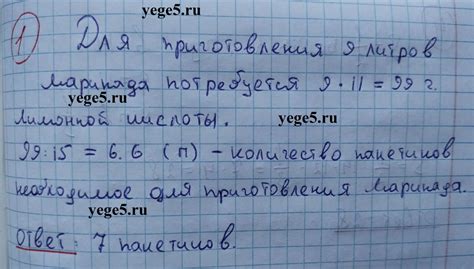 yege5.ru
1) Для приготовления 9 литров
маринада потребуется 9·11=99 г.
yege5.ru
лимонной кислоты.
yege5.ru
99:15 = 6.6 (п) - количество пакетиков
необходимое для приготовления маринада.
yege5.ru
Ответ: 7 пакетиков.